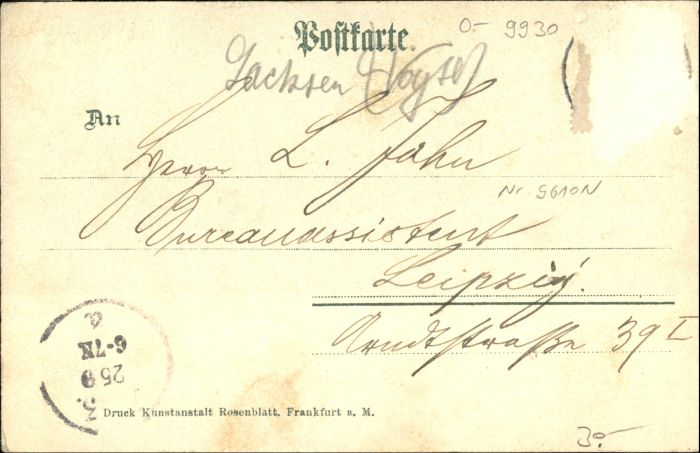 Postkarte.
O- 9930
Sachsen (Vogtl)
An
Herrn L. Jahn
Nr. 9610N
Bureauassistent
Leipzig.
Arndtstraße 39 I
6-7N
25 9
3.
Druck Kunstanstalt Rosenblatt. Frankfurt a. M.
30-